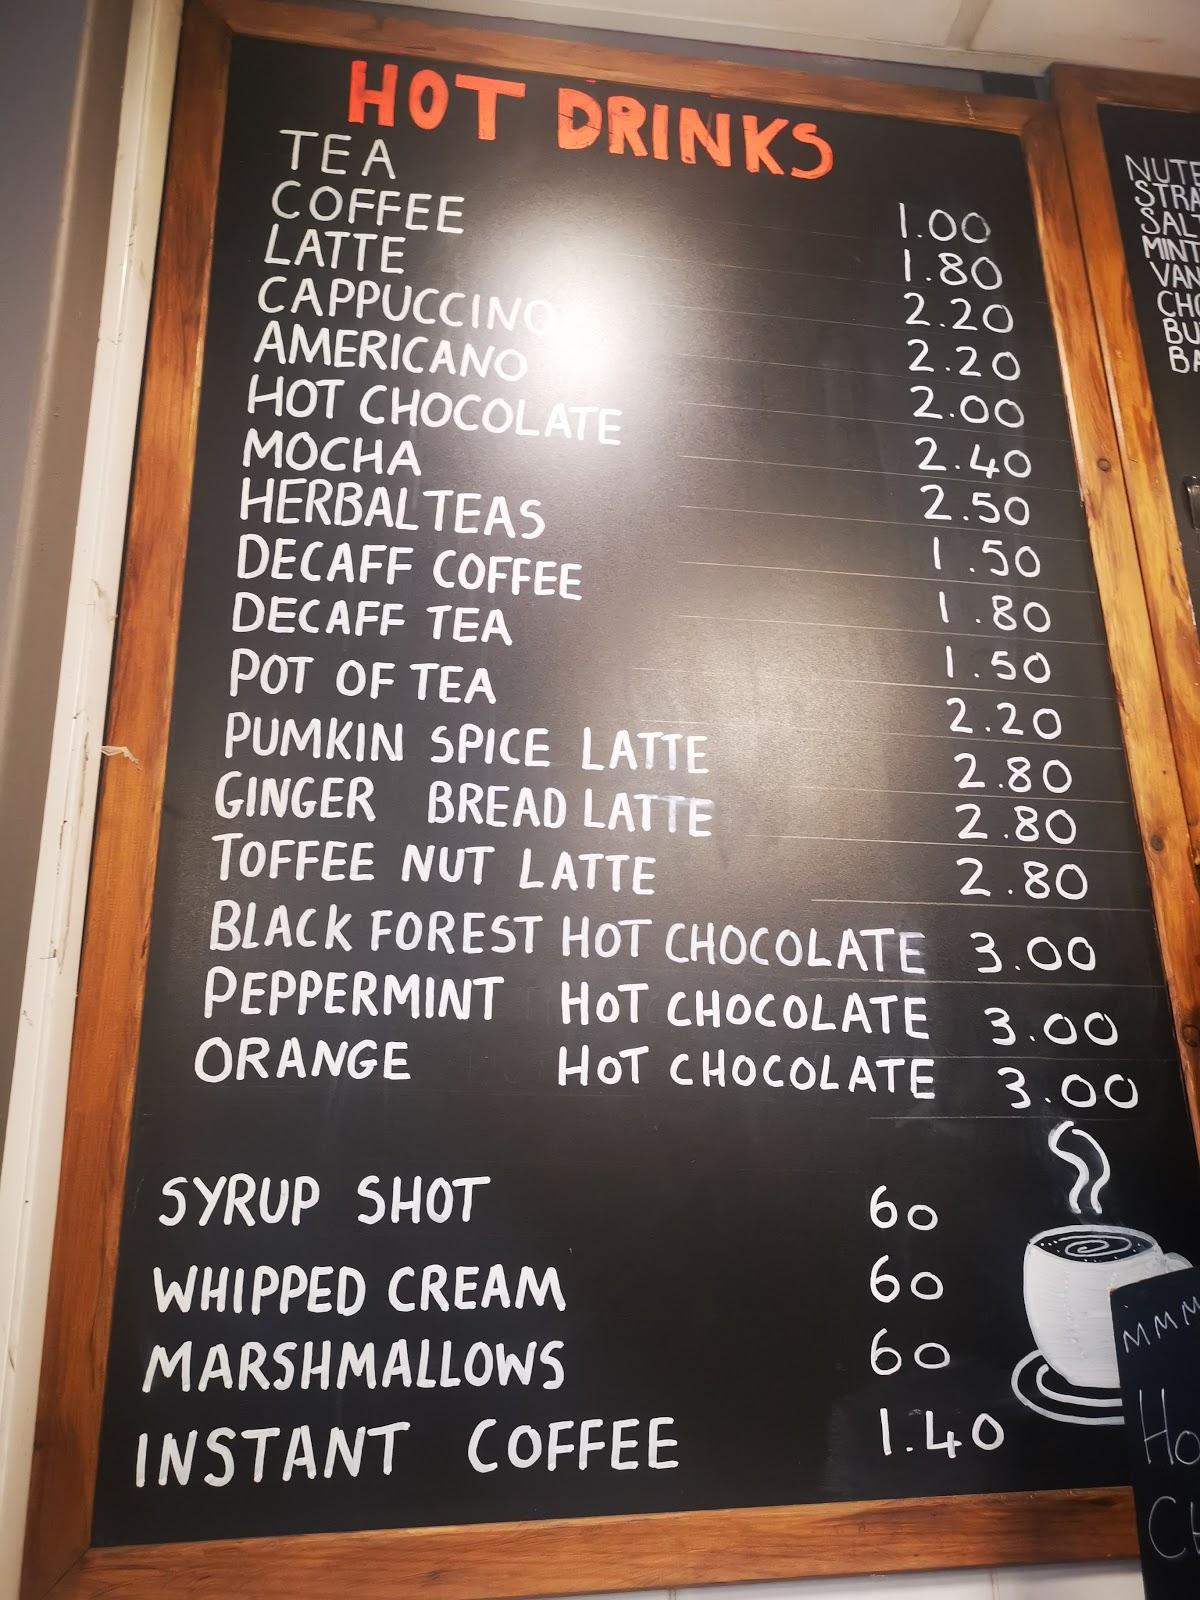 HOT DRINKS
TEA 1.00
COFFEE 1.80
LATTE 2.20
CAPPUCCINO 2.20
AMERICANO 2.00
HOT CHOCOLATE 2.40
MOCHA 2.50
HERBAL TEAS 1.50
DECAFF COFFEE 1.80
DECAFF TEA 1.50
POT OF TEA 2.20
PUMKIN SPICE LATTE 2.80
GINGER BREAD LATTE 2.80
TOFFEE NUT LATTE 2.80
BLACK FOREST HOT CHOCOLATE 3.00
PEPPERMINT HOT CHOCOLATE 3.00
ORANGE HOT CHOCOLATE 3.00
SYRUP SHOT 60
WHIPPED CREAM 60
MARSHMALLOWS 60
INSTANT COFFEE 1.40